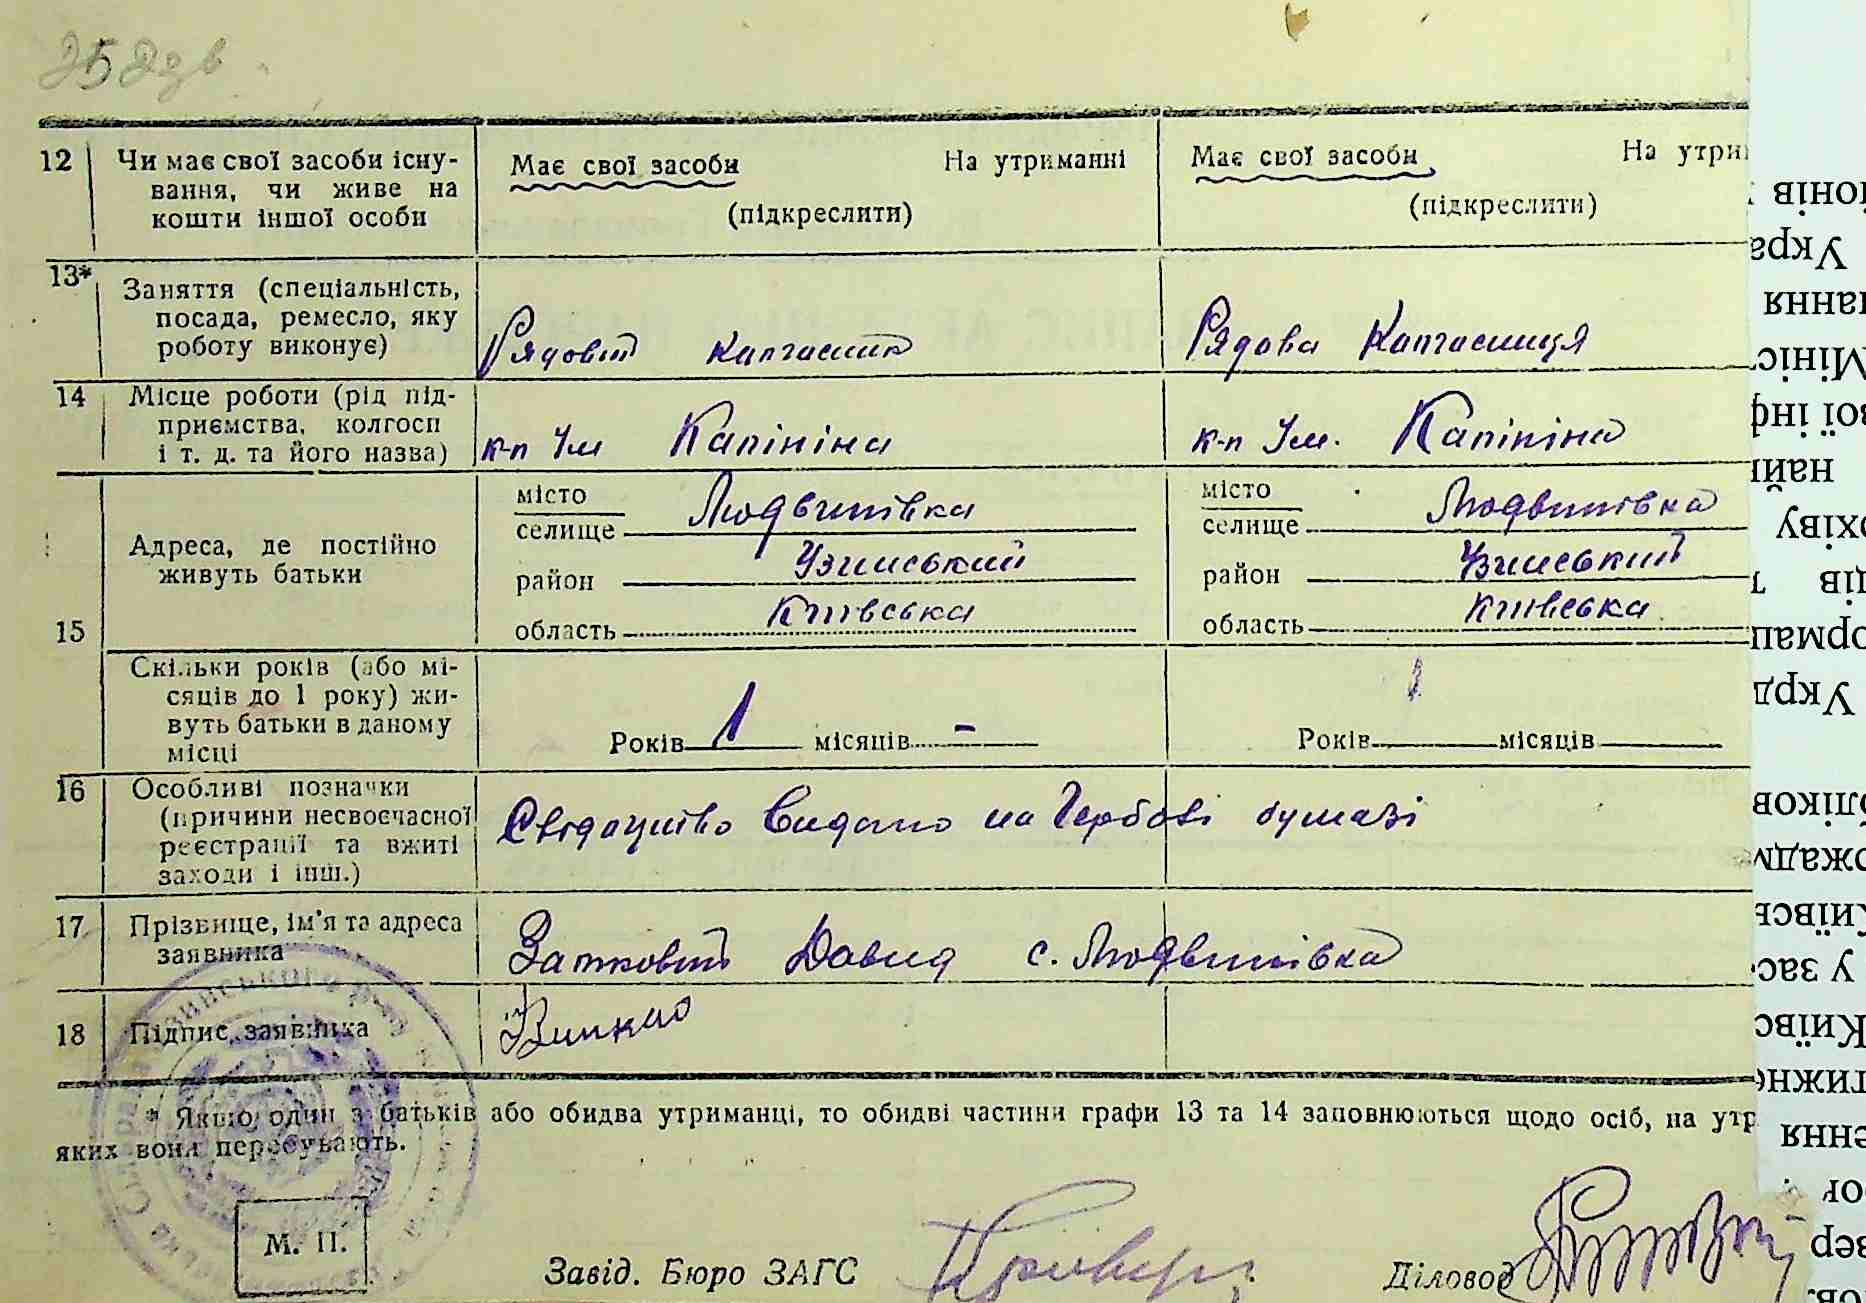 12 Чи має свої засоби існу-
вання, чи живе на
кошти іншої особи
Має свої засоби На утриманні
(підкреслити)
Має свої засоби На утри
(підкреслити)
13* Заняття (спеціальність,
посада, ремесло, яку
роботу виконує)
Рядовий Калгасник
Рядова Калгасниця
14 Місце роботи (рід під-
приємства, колгосп
і т. д. та його назва)
к-п Ім Калініна
к-п Ім. Калініна
15 Адреса, де постійно
живуть батьки
місто
селище Людвинівка
район Узинський
область Київська
місто
селище Людвинівка
район Узинський
область Київська
Скільки років (або мі-
сяців до 1 року) жи-
вуть батьки в даному
місці
Років 1 місяців -
Років місяців
16 Особливі позначки
(причини несвоєчасної
реєстрації та вжиті
заходи і інш.)
Свідоцтво Видано на Гербові бумазі
17 Прізвище, ім'я та адреса
заявника
Давид с. Людвинівка
18 Підпис заявника
* Якщо один з батьків або обидва утриманці, то обидві частини графи 13 та 14 заповнюються щодо осіб, на утр
яких вони перебувають.
М. П.
Завід. Бюро ЗАГС
Діловод